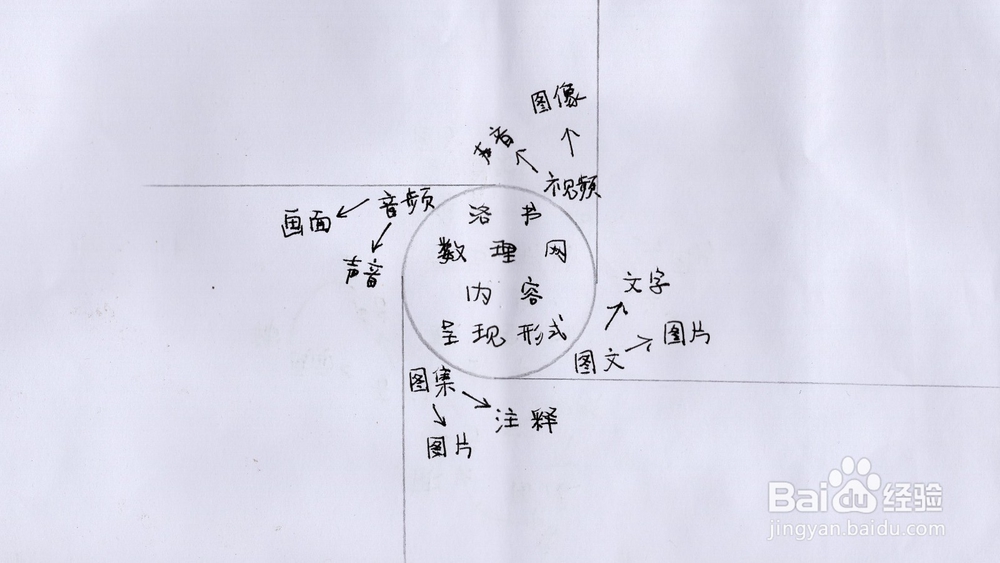 图像
声音
视频
音频
画面
声音
洛书
数理网
内容
呈现形式
文字
图文
图片
图集
注释
图片
Baidu经验
jingyan.baidu.com